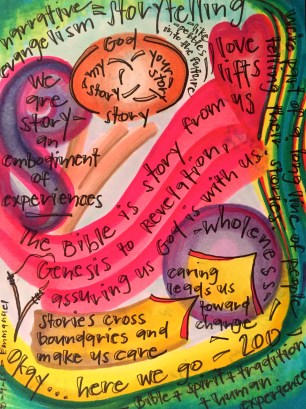 narrative = storytelling
evangelism
like
petals
into the future
God
my story
your story
story
love
lifts
us
we
are
story
an
embodiment
of
experiences
The Bible is story from
Genesis to revelation,
assuring us God is with us.
wholeness
caring
leads us
toward
change
stories cross
boundaries and
make us care
Okay... here we go - 2017
Bible + spirit + tradition
+ human
experience
telling their stories.
Emmanuel